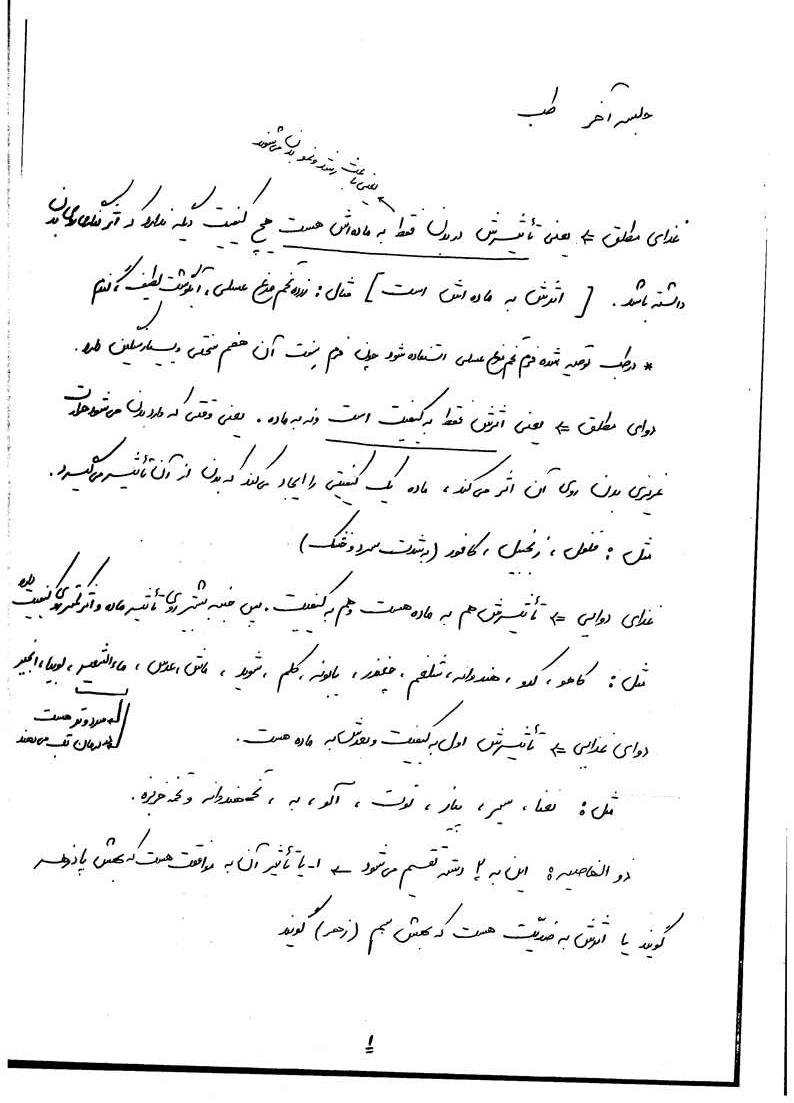 جلسه آخر طب
یعنی باعث رشد و نمو بدن می‌شوند
غذای مطلق ⇐ یعنی تأثیرش در بدن فقط به ماده‌اش هست هیچ کیفیت دیگه ندارد که اثر روی بدن
داشته باشد. [اثرش به ماده‌اش است] مثال: زرده تخم مرغ عسلی، آبگوشت لطیف گندم
* در طب توصیه شده فرم تخم مرغ عسلی استفاده شود چون فرم سفت آن هضم سختی و بسیار سنگین دارد.
دوای مطلق ⇐ یعنی اثرش فقط به کیفیت است و نه به ماده. یعنی وقتی که وارد بدن می‌شود حرارت
غریزی بدن روی آن اثر می‌کند، ماده یک کیفیتی را ایجاد می‌کند که بدن از آن تأثیر می‌گیرد.
مثل: فلفل، زنجبیل، کافور (به شدت سرد و خشک)
غذای دوایی ⇐ تأثیرش هم به ماده هست و هم به کیفیت. پس جنبه بیشتر روی تأثیر ماده و اثر کمتری روی کیفیت داره
مثل: کاهو، کدو، هندوانه، شلغم، چغندر، بابونه، کلم، شوید، ماش، عدس، ماءالشعیر، لوبیا، انجیر
سرد و تر هست
درمان تب می‌دهند
دوای غذایی ⇐ تأثیرش اول به کیفیت و بعدش به ماده هست.
مثل: نعنا، سیر، پیاز، توت، آلو، به، تخمه هندوانه و تخمه خربزه.
ذو الخاصیه: این به ۲ دسته تقسیم می‌شود ← ۱- یا تأثیر آن به موافقت هست که بهش پادزهر
گویند یا اثرش به ضدیّت هست که بهش سم (زهر) گویند
۱